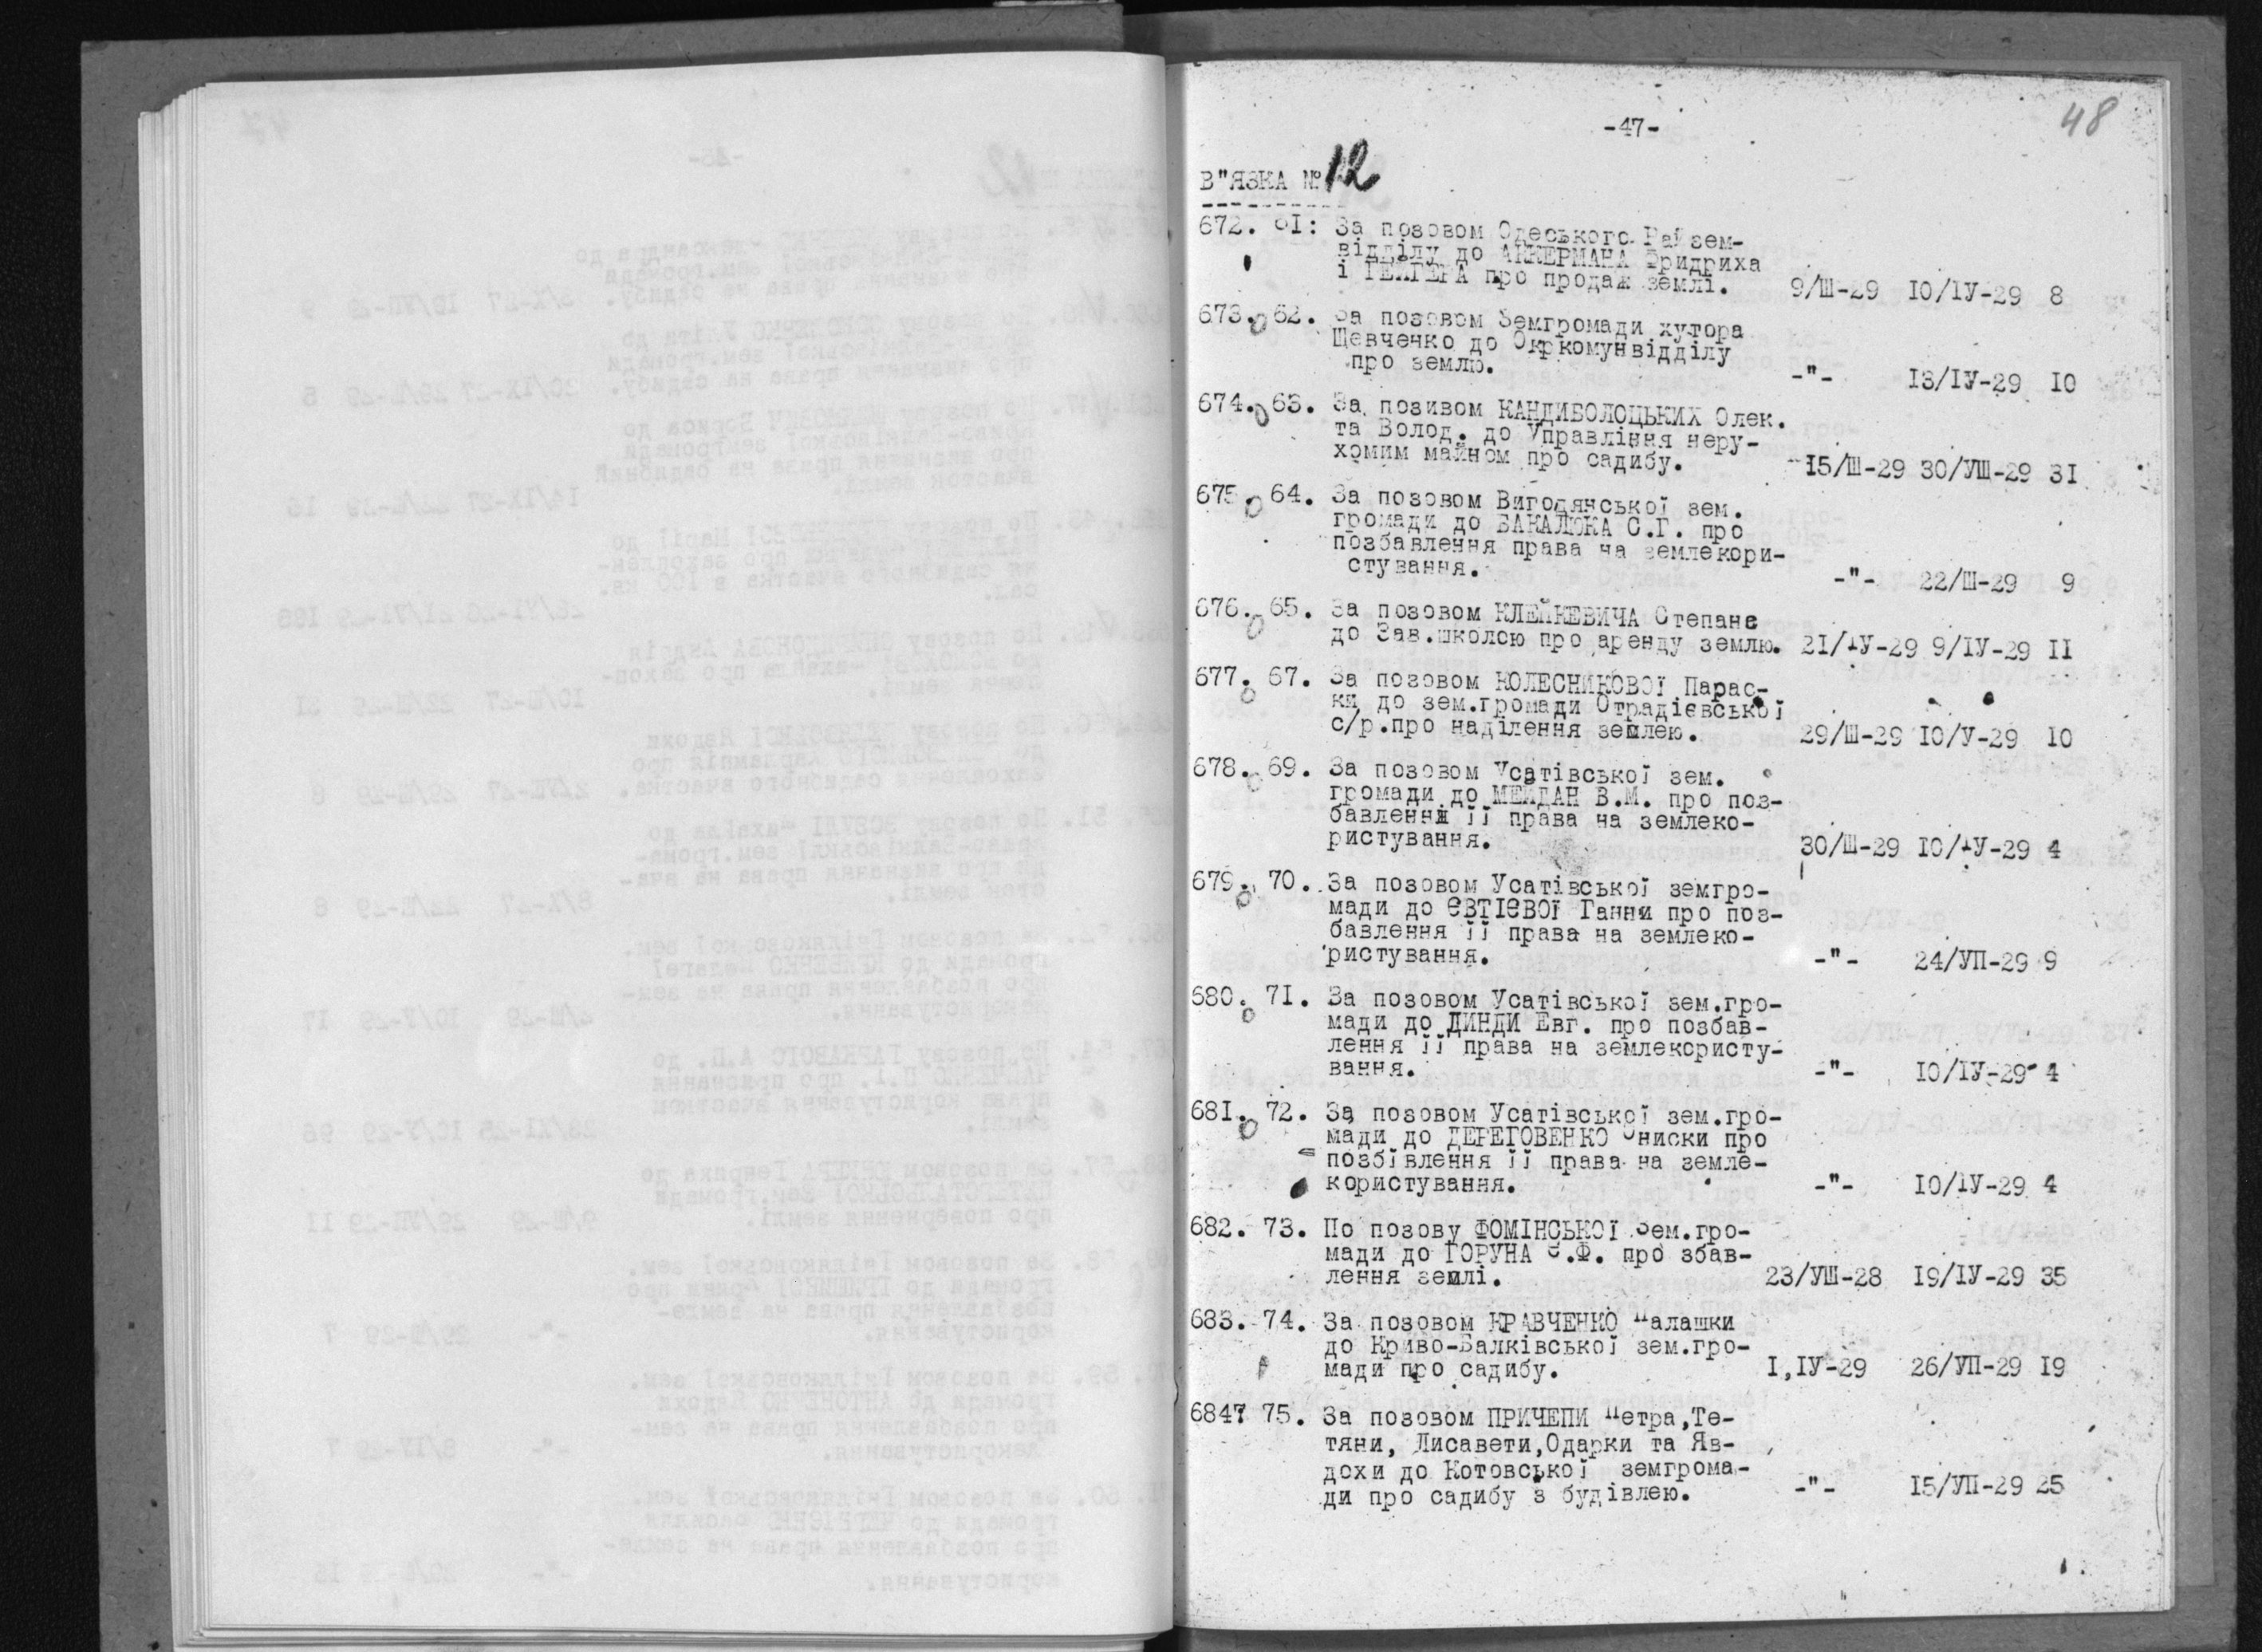 48
-47-
В"ЯЗКА № 12
672. 61: За позовом Одеського Райзем-
відділу до АККЕРМАНА Фридриха
і ГЕЙГЕРА про продаж землі. 9/Ш-29 10/ІУ-29 8
673. 62. За позовом Земгромади хутора
Шевченко до Окркомунвідділу
про землю. -"- 13/ІУ-29 10
674. 63. За позивом КАНДИБОЛОЦЬКИХ Олек.
та Волод. до Управління неру-
хомим майном про садибу. 15/Ш-29 30/УШ-29 31
675. 64. За позовом Вигодянської зем.
громади до БАКАЛЮКА С.Г. про
позбавлення права на землекори-
стування. -"- 22/Ш-29 9
676. 65. За позовом КЛЕЙКЕВИЧА Степана
до Зав.школою про аренду землю. 21/ІУ-29 9/ІУ-29 11
677. 67. За позовом КОЛЕСНИКОВОЇ Парас-
ки до зем.громади Отрадієвської
с/р.про наділення землею. 29/Ш-29 10/У-29 10
678. 69. За позовом Усатівської зем.
громади до МЕЙДАН В.М. про поз-
бавлення її права на землеко-
ристування. 30/Ш-29 10/ІУ-29 4
679. 70. За позовом Усатівської земгро-
мади до ЄВТІЄВОЇ Ганни про поз-
бавлення її права на землеко-
ристування. -"- 24/УП-29 9
680. 71. За позовом Усатівської зем.гро-
мади до ДИНДИ Евг. про позбав-
лення її права на землекористу-
вання. -"- 10/ІУ-29 4
681. 72. За позовом Усатівської зем.гро-
мади до ДЕРЕГОВЕНКО Ониски про
позбівлення її права на земле-
користування. -"- 10/ІУ-29 4
682. 73. По позову ФОМІНСЬКОЇ Зем.гро-
мади до ГОРУНА Ф. про збав-
лення землі. 23/УШ-28 19/ІУ-29 35
683. 74. За позовом КРАВЧЕНКО Палашки
до Криво-Балківської зем.гро-
мади про садибу. 1,ІУ-29 26/УП-29 19
684 75. За позовом ПРИЧЕПИ Петра,Те-
тяни, Лисавети,Одарки та Яв-
дохи до Котовської земгрома-
ди про садибу з будівлею. -"- 15/УП-29 25